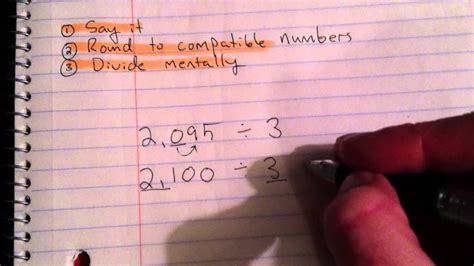 ① Say it
② Round to compatible numbers
③ Divide mentally
2,095 ÷ 3
2,100 ÷ 3